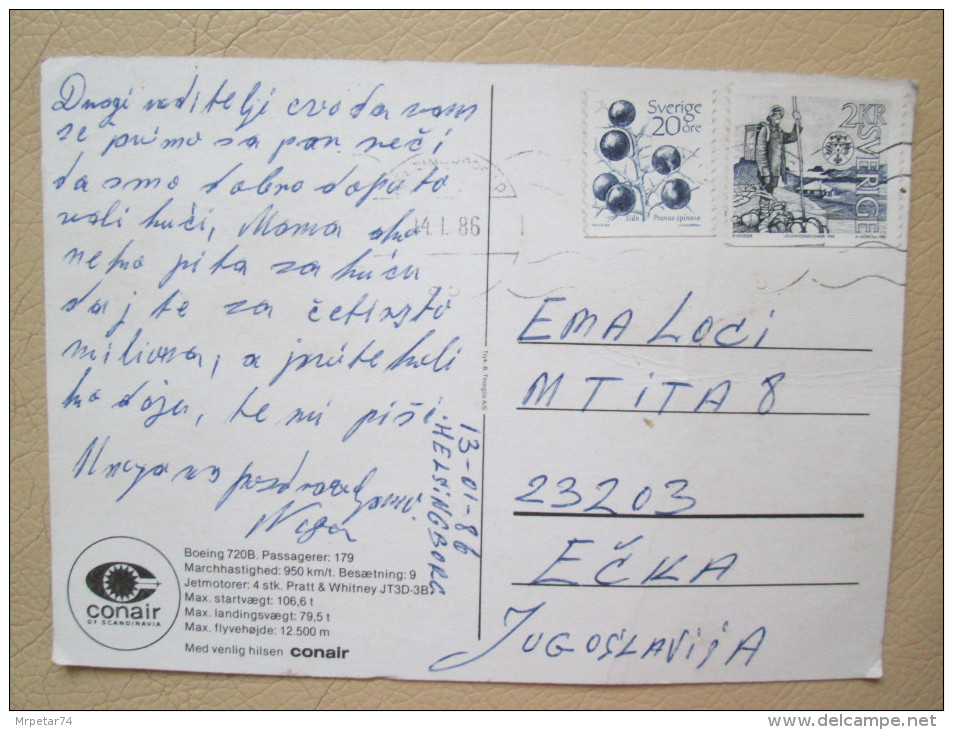 Dragi roditelji evo da vam
se javimo sa par reči
da smo dobro doputo
vali kući, Mama ako
neko pita za kuću
dajte za četirsto
miliona, a javite koli
ko daju, te mi piši.
Mnogo vas pozdravljamo.
13-01-86
HELSINGBORG
Boeing 720B. Passagerer: 179
Marchhastighed: 950 km/t. Besætning: 9
Jetmotorer: 4 stk. Pratt & Whitney JT3D-3B
Max. startvægt: 106,6 t
Max. landingsvægt: 79,5 t
Max. flyvehøjde: 12.500 m
Med venlig hilsen conair
conair
OF SCANDINAVIA
Tryk: B. Thorgils A/S
14.1.86
Sverige
20 öre
Slån Prunus spinosa
2KR
SVERIGE
EMA LOCI
M TITA 8
23203
EČKA
JUGOSLAVIJA
Mrpetar74
www.delcampe.net